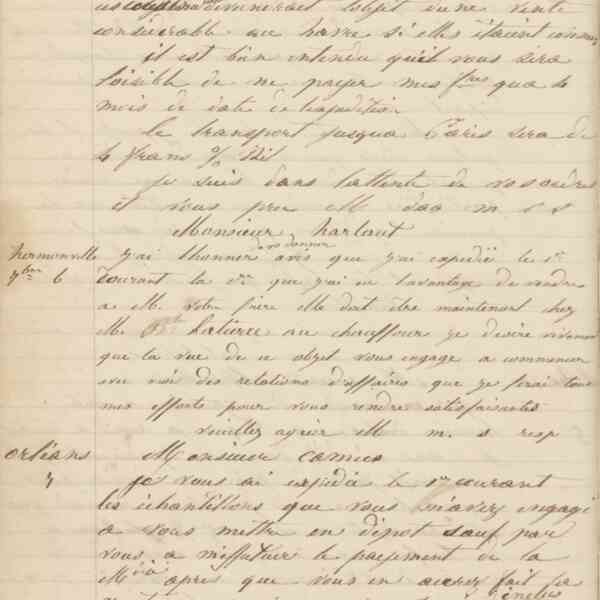 deviendrait l'objet d'une vente
considerable au havre si elles étaient connues
il est bien entendu qu'il vous sera
loisible de ne payer mes fres qua 4
mois de date de l'expédition
le transport jusqua Paris sera de
4 frans % Kil
je suis dans l'attente de vos ordres
et vous prie M dag m s
Monsieur harlaut
hermonville j'ai l'honneur vous donner avis que j'ai expedié le 1er
7bre 6 courant la que j'ai eu l'avantage de vendre
a M. votre frere elle doit être maintenant chez
M. au chauffour je desire vivement
que la vue de ce objet vous engage a commencer
avec moi des relations d'affaires que je ferai tous
mes efforts pour vous rendre satisfaisantes
veuillez agréer M m. s resp
orléans Monsieur camus
7 je vous ai expedié le 1er courant
les échantillons que vous m'avez engagé
a vous mettre en dépot sauf par
vous a m'effectuer le payement de la
Mdise apres que vous en aurez fait la